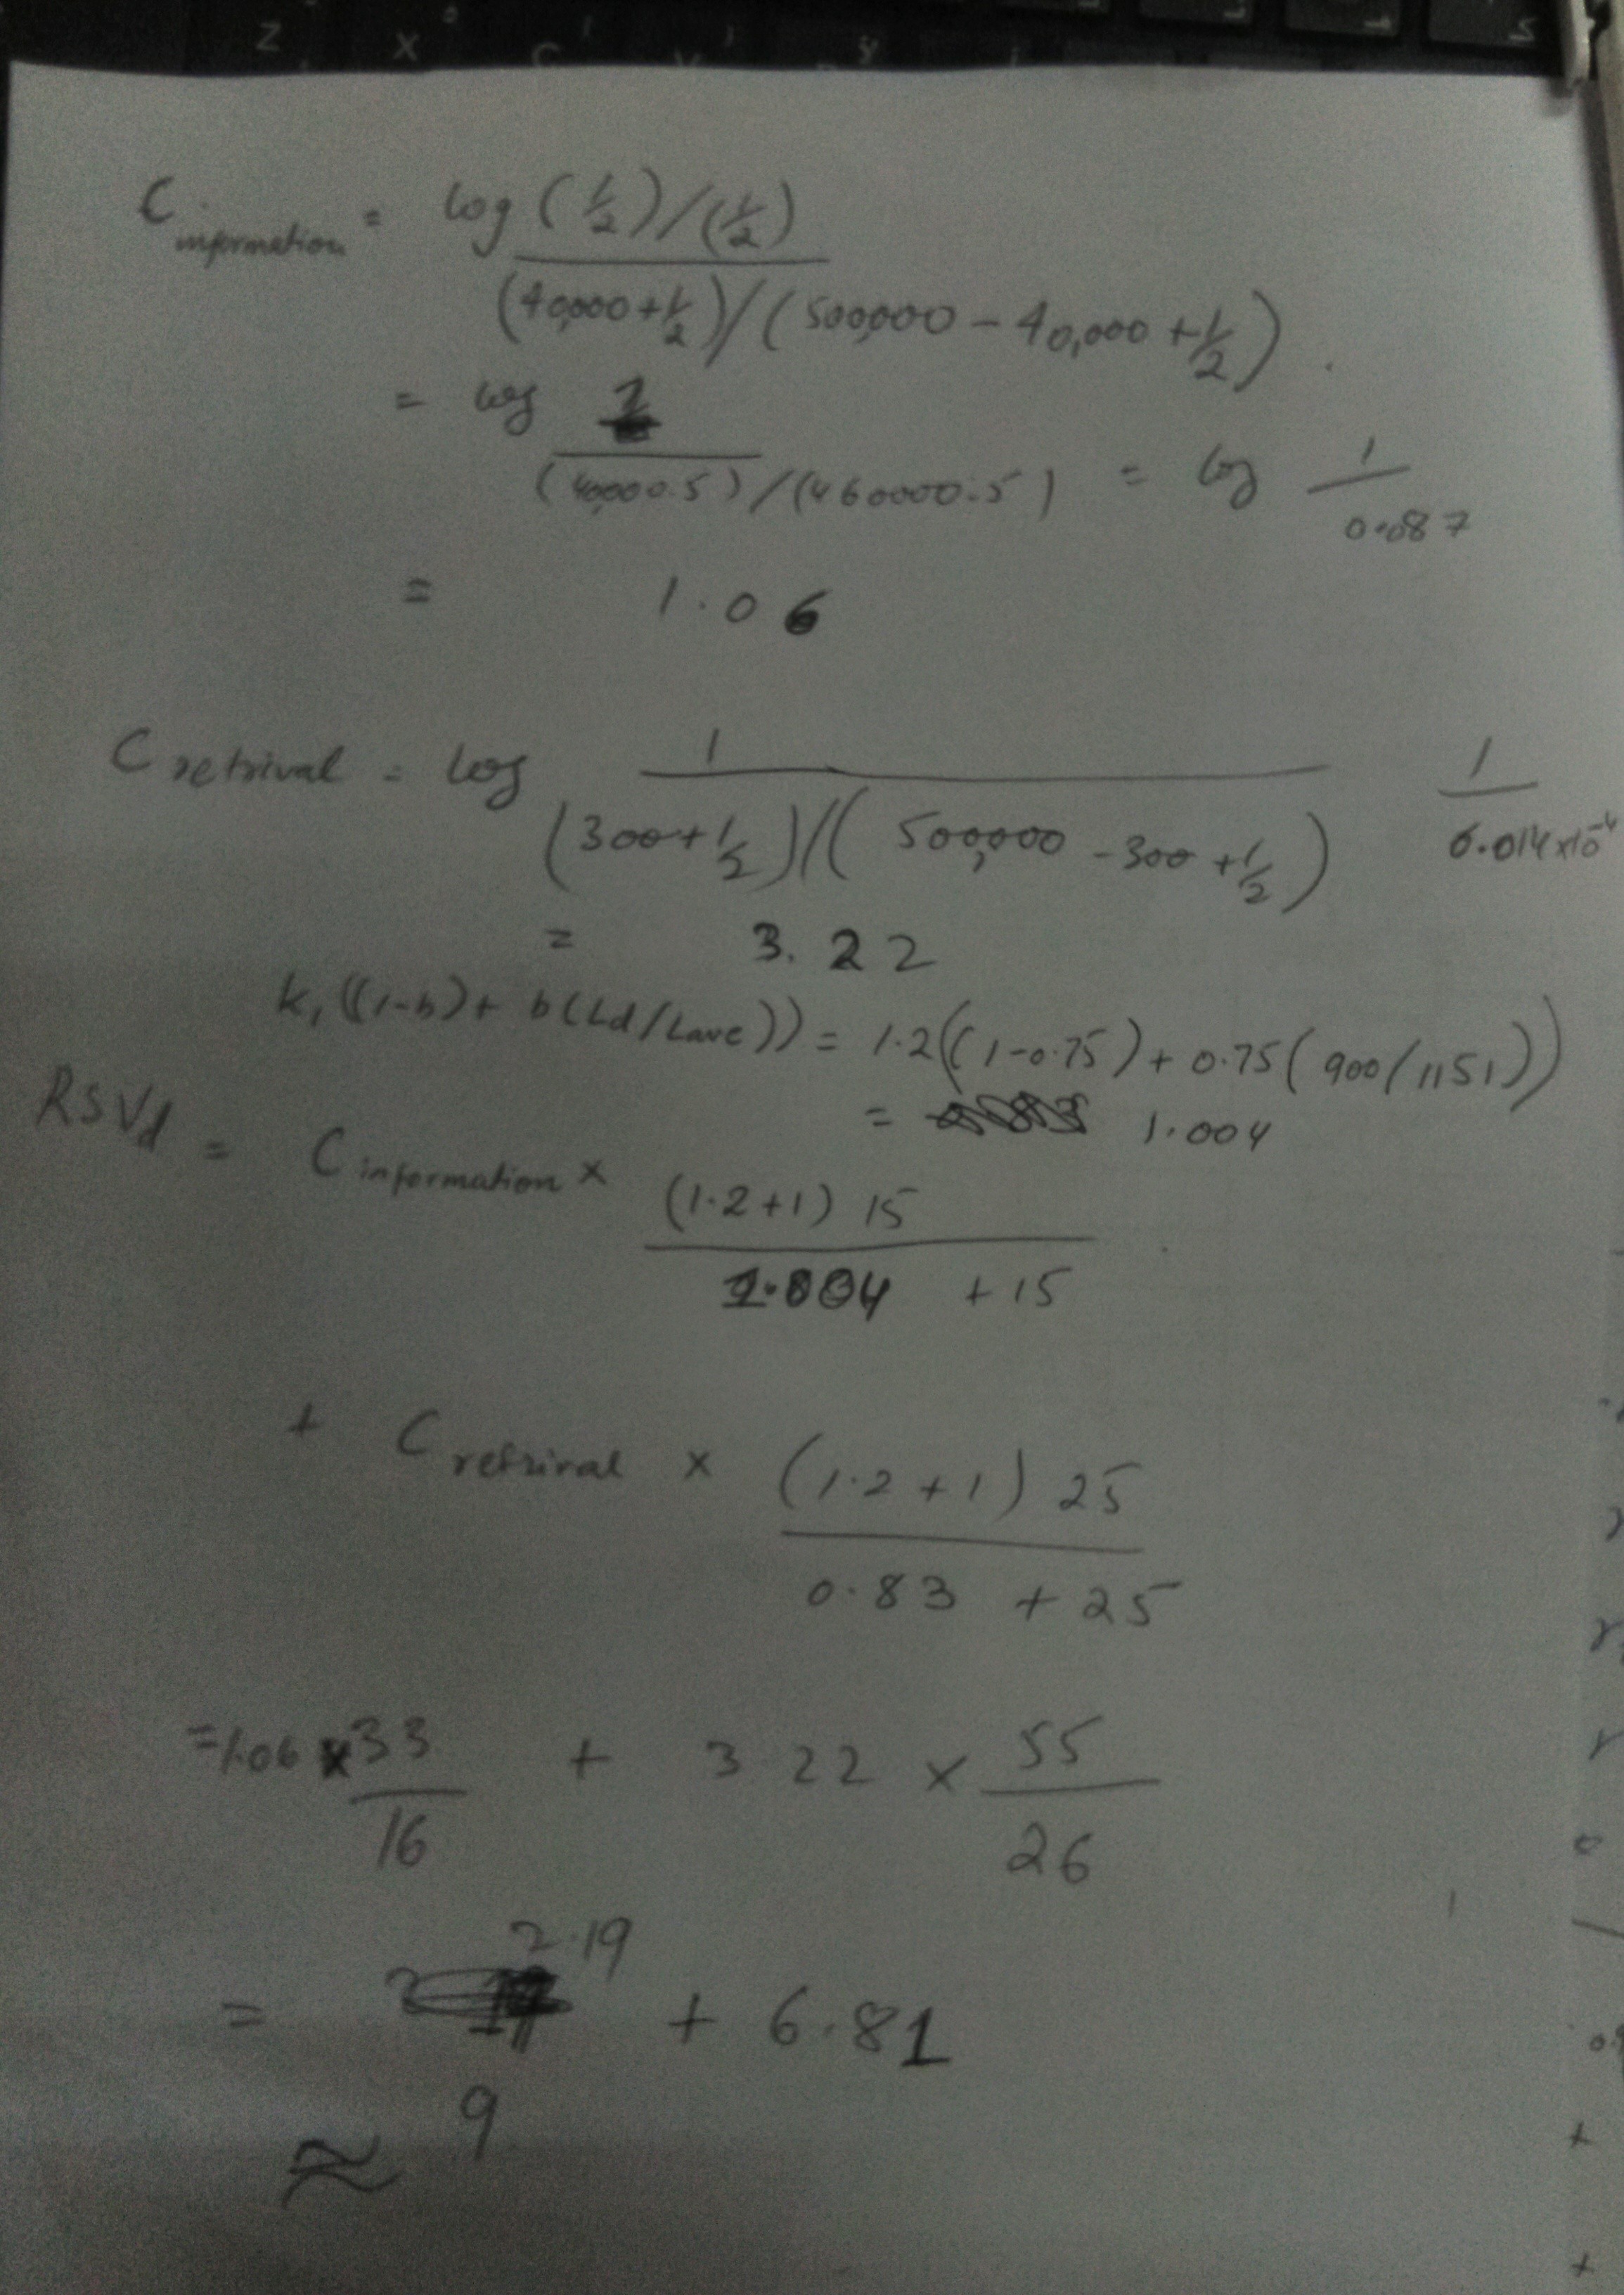 Z X C V
C information = log (1/2)/(1/2)
(40,000+1/2)/(500,000 - 40,000 + 1/2)
= log 1
(40,000.5)/(460000.5) = log 1/0.087
= 1.06
C retrival = log 1 1
(300+1/2)/(500,000 - 300 + 1/2) 6.014x10^-4
= 3.22
k1((1-b)+ b(Ld/Lave)) = 1.2((1-0.75) + 0.75(900/1151))
= 1.004
RSVd = C information x (1.2+1) 15
1.004 + 15
+ C retrival x (1.2+1) 25
0.83 + 25
= 1.06 x 33/16 + 3.22 x 55/26
2.19
= + 6.81
≈ 9